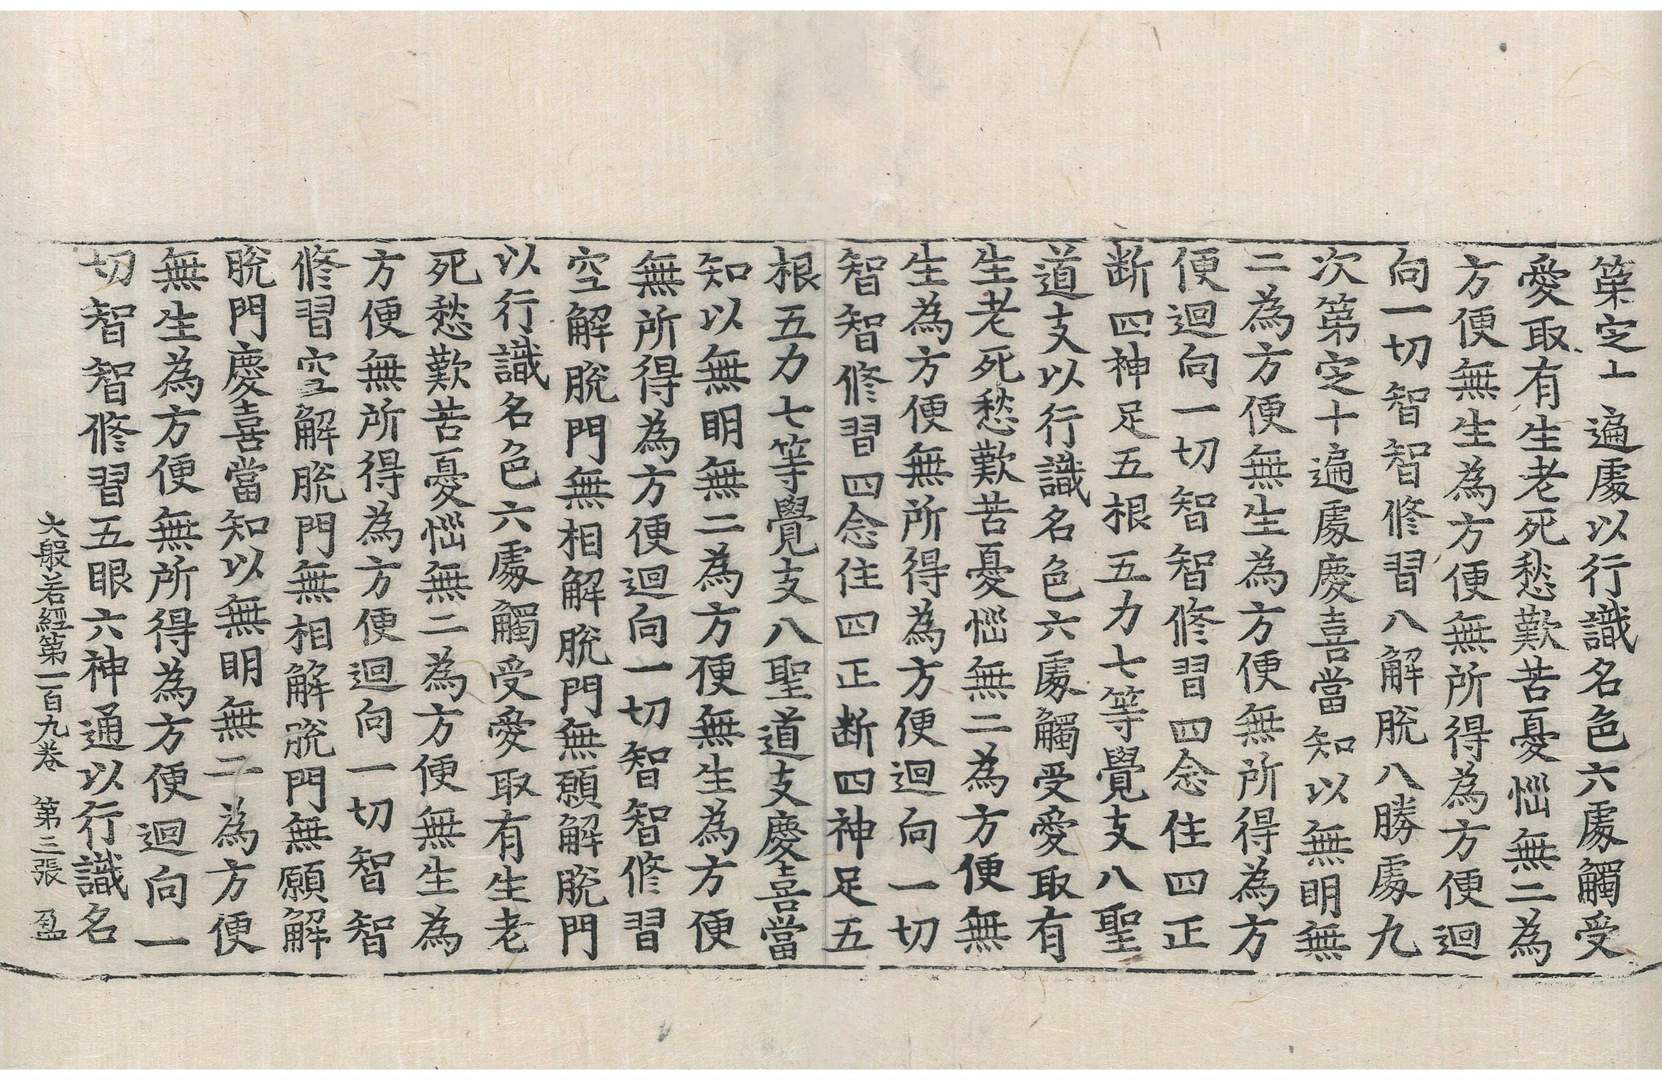 第定十遍處以行識名色六處觸受
愛取有生老死愁歎苦憂惱無二為
方便無生為方便無所得為方便迴
向一切智智修習八解脫八勝處九
次第定十遍處慶喜當知以無明無
二為方便無生為方便無所得為方
便迴向一切智智修習四念住四正
断四神足五根五力七等覺支八聖
道支以行識名色六處觸受愛取有
生老死愁歎苦憂惱無二為方便無
生為方便無所得為方便迴向一切
智智修習四念住四正断四神足五
根五力七等覺支八聖道支慶喜當
知以無明無二為方便無生為方便
無所得為方便迴向一切智智修習
空解脫門無相解脫門無願解脫門
以行識名色六處觸受愛取有生老
死愁歎苦憂惱無二為方便無生為
方便無所得為方便迴向一切智智
修習空解脫門無相解脫門無願解
脫門慶喜當知以無明無二為方便
無生為方便無所得為方便迴向一
切智智修習五眼六神通以行識名
大般若經第一百九卷 第三張 盈